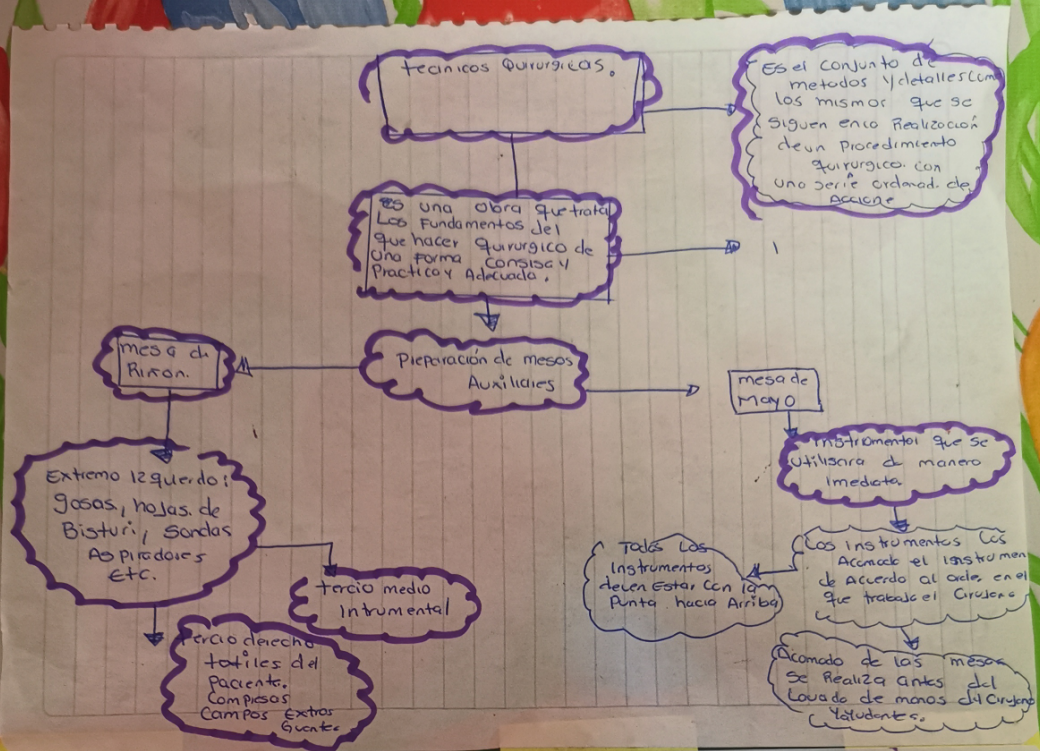 tecnicos Quirurgicas.
Es el conjunto de
metodos y detalles como
los mismos que se
siguen en la Realizacion
de un Procedimiento
quirurgico. con
una serie ordenad. de
Accione
es una obra que trata
Los Fundamentos del
que hacer quirurgico de
una forma consisa y
Practica y Adecuada.
Preparación de mesas
Auxiliares
mesa de
Riñon.
mesa de
Mayo
Extremo izquerdo:
gasas, hojas. de
Bisturi, Sondas
Aspiradores
Etc.
tercio medio
intrumental
tercio derecho
totiles del
Paciente.
Compresas
Campos Extras
Guantes
instrumental que se
utilisara de manera
imediata.
Los instrumentos Los
Acomoda el instrumen
de Acuerdo al orden en el
que trabaja el Cirujano
Todos Los
Instrumentos
deven Estar con la
Punta hacia Arriba
Acomodo de las mesas
se Realiza antes del
Lavado de manos del Cirujano
y Ayudantes.